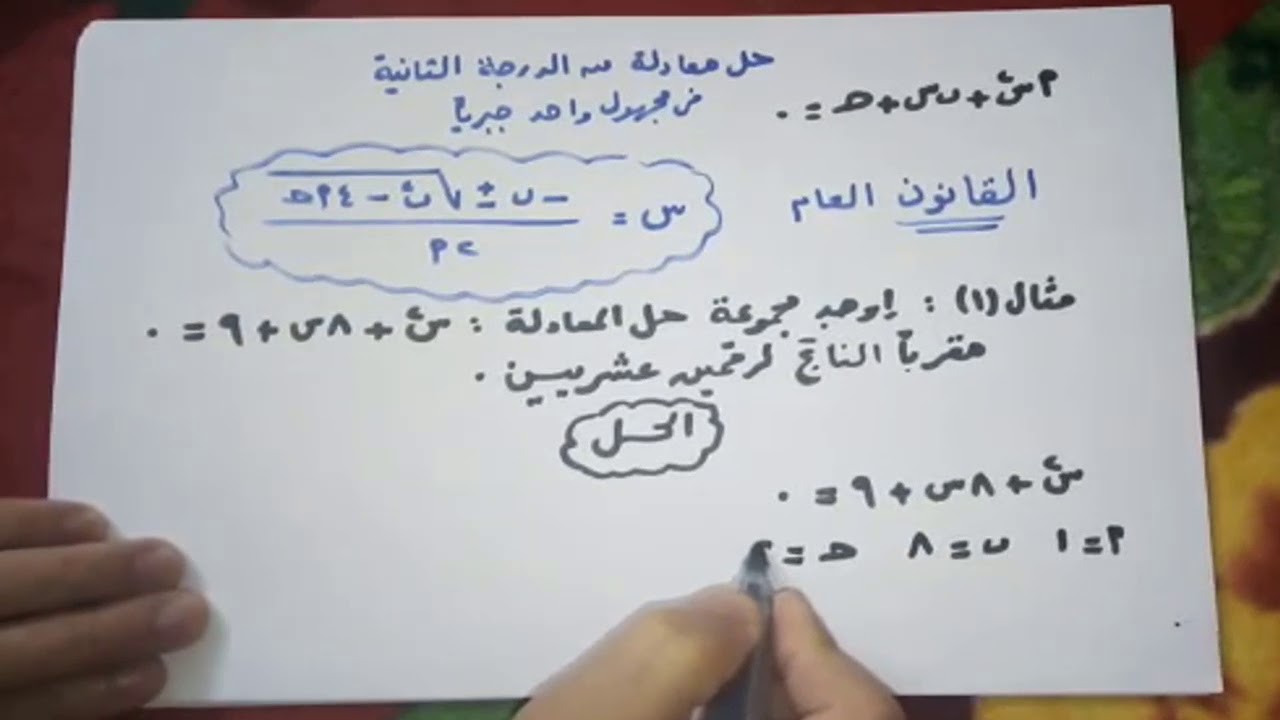 حل معادلة من الدرجة الثانية
في مجهول واحد جبرياً
٢س٢ + ب س + حـ = ٠
القانون العام
س = (- ب ± √(ب٢ - ٤ ٢ حـ)) / (٢ ٢)
مثال (١) : اوجد مجموعة حل المعادلة : س٢ + ٨س + ٩ = ٠
مقرباً الناتج لرقمين عشريين .
الحل
س٢ + ٨س + ٩ = ٠
٢ = ١ ب = ٨ حـ =